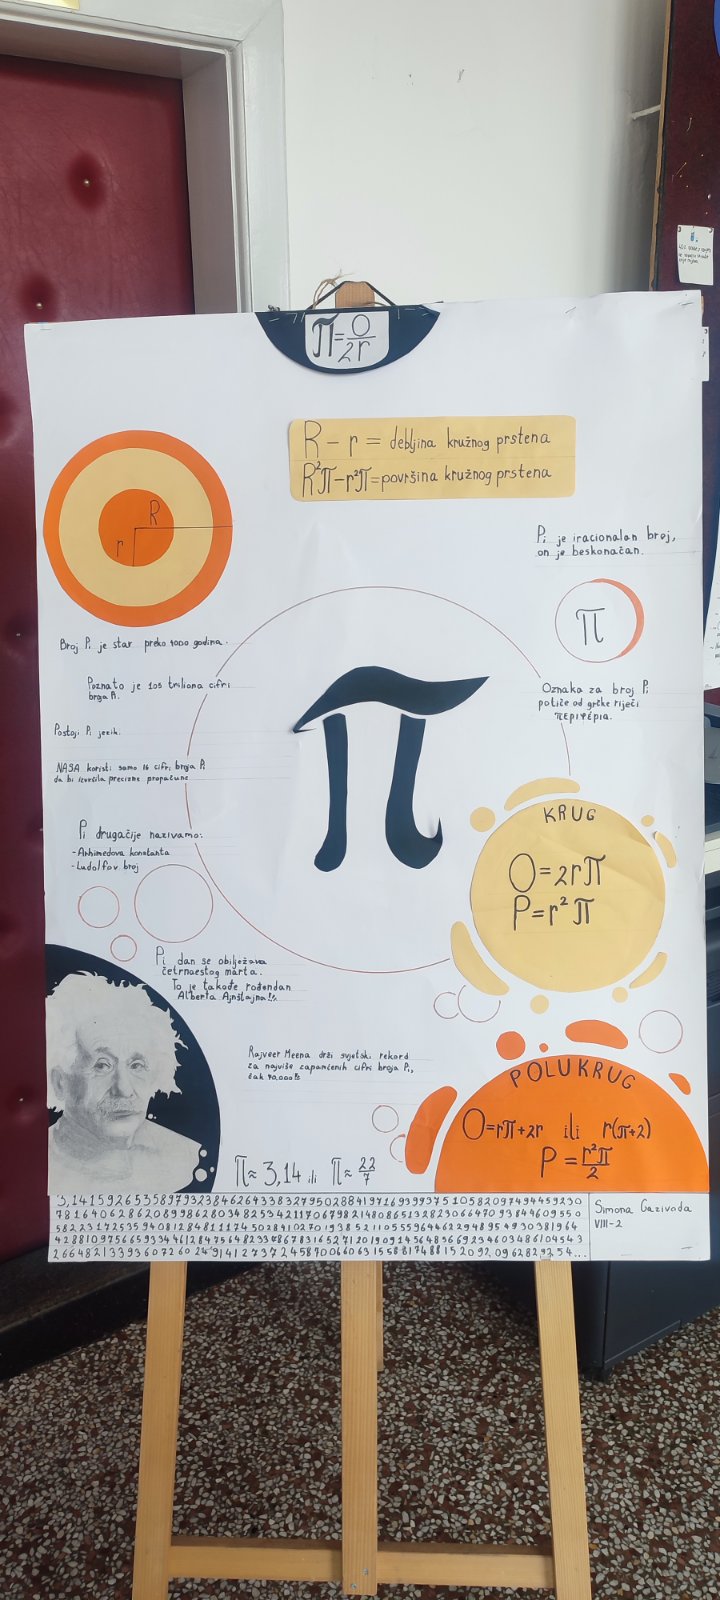 π=O/2r
R-r= debljina kružnog prstena
R²π-r²π=površina kružnog prstena
R
r
Pi je iracionalan broj,
on je beskonačan.
π
Broj Pi je star preko 4000 godina.
Oznaka za broj Pi
potiče od grčke riječi
περιφέρια.
Poznato je 105 triliona cifri
broja Pi.
Postoji Pi jezik.
NASA koristi samo 16 cifri broja Pi
da bi izvršila precizne proračune
π
Pi drugačije nazivamo:
-Arhimedova konstanta
-Ludolfov broj
KRUG
O=2rπ
P=r²π
Pi dan se obilježava
četrnaestog marta.
To je takođe rođendan
Alberta Ajnštajna!!
Rajveer Meena drži svjetski rekord
za najviše zapamćenih cifri broja Pi,
čak 70.000!!
POLUKRUG
O=rπ+2r ili r(π+2)
P=r²π/2
π≈3,14 ili π≈22/7
3,14159265358979323846264338327950288419716939937510582097494459230
Simona Gazivoda
VIII-2